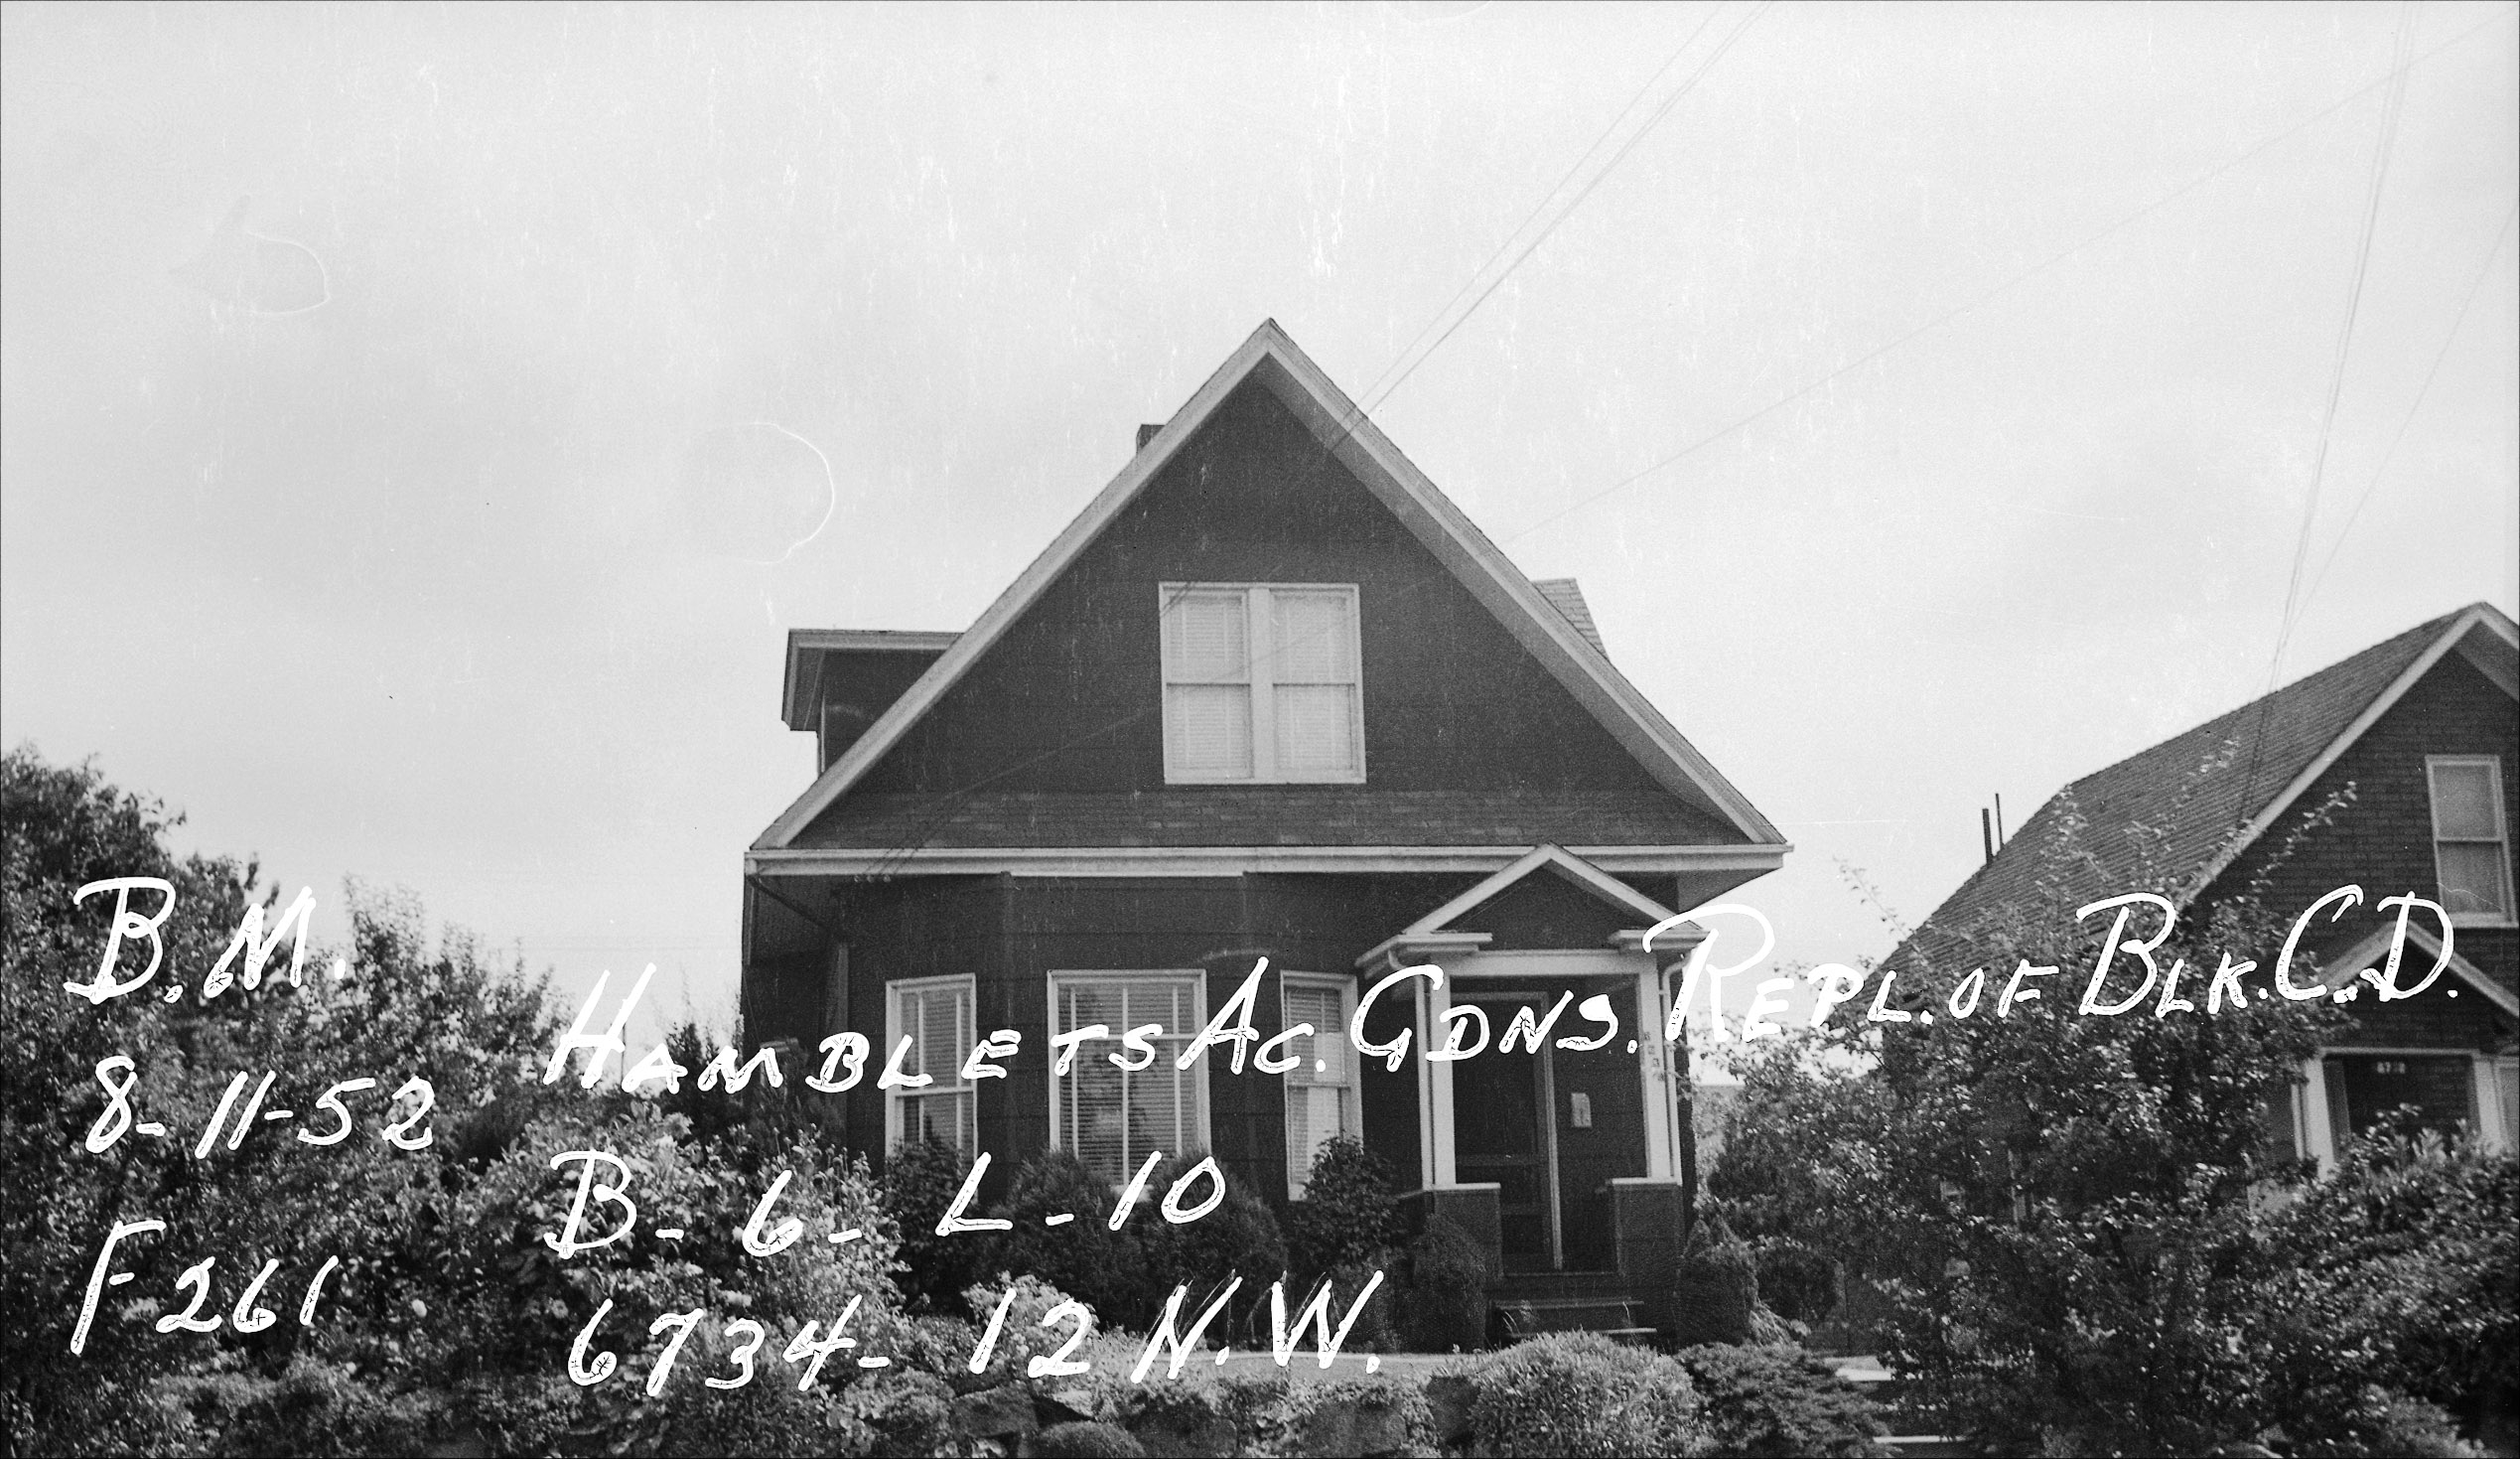 B.M.
8-11-52
F261
HAMBLETS AC. GDNS. REPL. OF BLK. C.D.
B-6-L-10
6734-12 N.W.